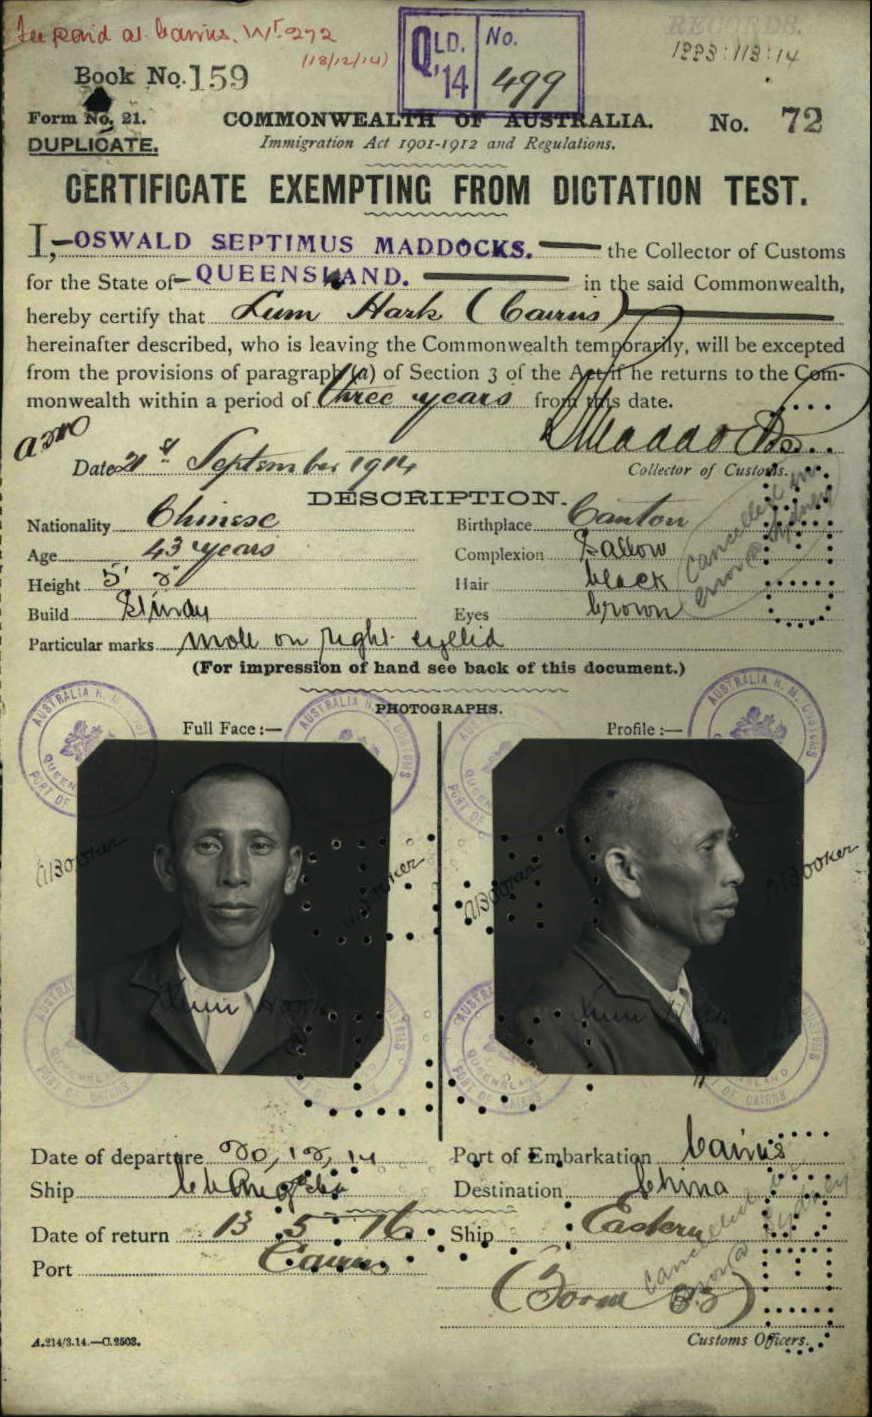 Fee paid at Cairns. Wt. 272
(18/12/14)
QLD. '14 No. 499
RECORDS.
Book No. 159
Form No. 21.
DUPLICATE.
COMMONWEALTH OF AUSTRALIA.
No. 72
Immigration Act 1901-1912 and Regulations.
CERTIFICATE EXEMPTING FROM DICTATION TEST.
I, OSWALD SEPTIMUS MADDOCKS. the Collector of Customs
for the State of QUEENSLAND. in the said Commonwealth,
hereby certify that Lum Hark (Cairns)
hereinafter described, who is leaving the Commonwealth temporarily, will be excepted
from the provisions of paragraph (a) of Section 3 of the Act if he returns to the Com-
monwealth within a period of three years from this date.
OSMaddocks.
Date 21st September 1914
Collector of Customs.
DESCRIPTION.
Nationality Chinese Birthplace Canton
Age 43 years Complexion Sallow
Height 5' Hair black
Build Eyes brown
Particular marks mole on right eyelid
(For impression of hand see back of this document.)
PHOTOGRAPHS.
Full Face :— Profile :—
AUSTRALIA H. M. CUSTOMS
QUEENSLAND
PORT OF CAIRNS
ABooker
ABooker
ABooker
ABooker
Lum Hark
Lum Hark
Date of departure 20, 12, 14 Port of Embarkation Cairns
Ship Destination China
Date of return 13 5 16 Ship Eastern
Port Cairns
(Form 32)
Cancelled in error @ Sydney
Cancelled in error @ Sydney
A.214/3.14.—C.2503.
Customs Officers.